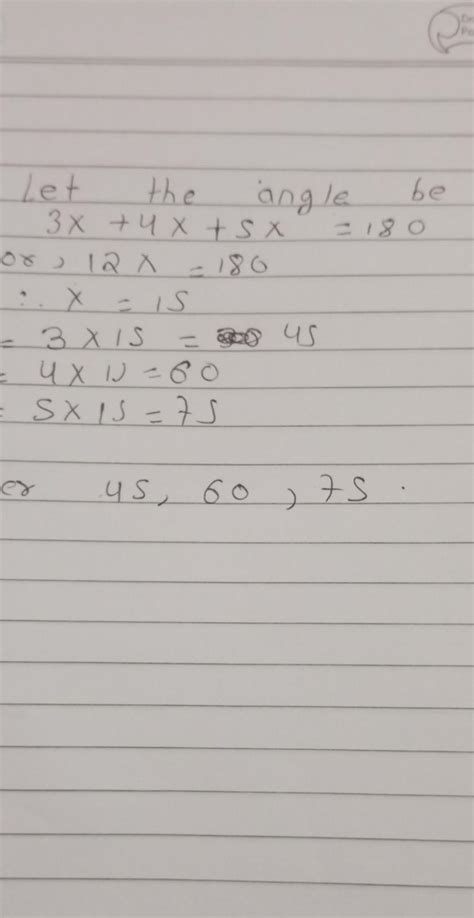 Let the angle be
3x + 4x + 5x = 180
or, 12x = 180
∴ x = 15
= 3 × 15 = 45
= 4 × 15 = 60
= 5 × 15 = 75
er 45, 60, 75.